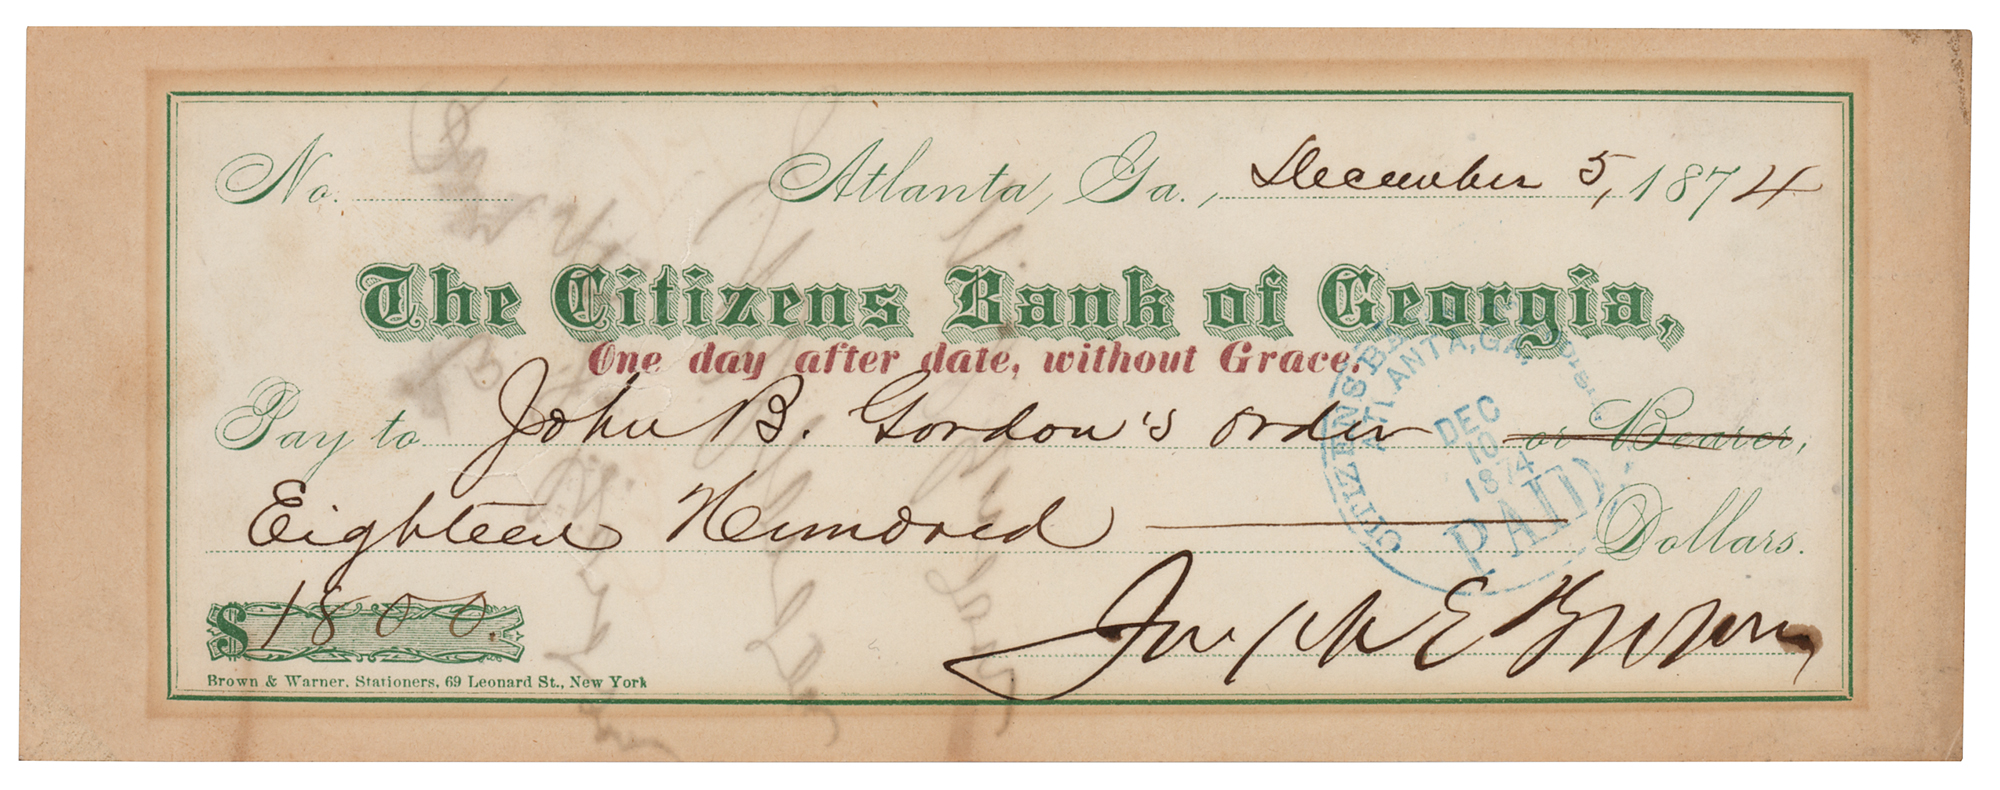 No. Atlanta, Ga., December 5, 1874
The Citizens Bank of Georgia,
One day after date, without Grace.
Pay to John B. Gordon's order or Bearer,
Eighteen Hundred Dollars.
$1800.
Joseph E Brown
Brown & Warner, Stationers, 69 Leonard St., New York
CITIZENS
ATLANTA, GA.
DEC
10
1874
PAID